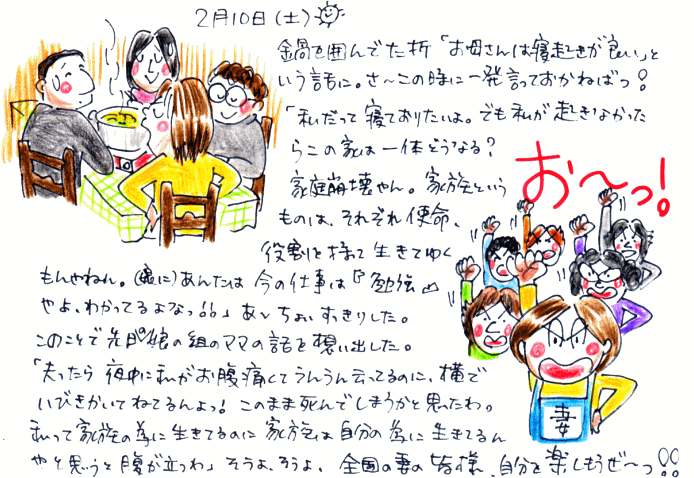 2月10日(土)
鍋を囲んでた折「お母さんは寝起きが良い」と
いう話に。さ〜この時に一発言っておかねばっ!
「私だって寝ておりたいよ。でも私が起きなかった
らこの家は一体どうなる?
家庭崩壊やん。家族という
ものは、それぞれ使命、
役割を持って生きてゆく
もんやねん。(娘に)あんたは今の仕事は『勉強』
やよ、わかってるよなっ!!」あ〜ちょいすっきりした。
このことで先日娘の組のママの話を想い出した。
「夫ったら夜中に私がお腹痛くてうんうん云ってるのに、横で
いびきかいてねてるんよっ!このまま死んでしまうかと思ったわ。
私って家族の為に生きてるのに家族は自分の為に生きてるん
やと思うと腹が立つわ」そうよ、そうよ、全国の妻の皆様、自分を楽しもうぜ〜っ!!
お〜っ!
妻